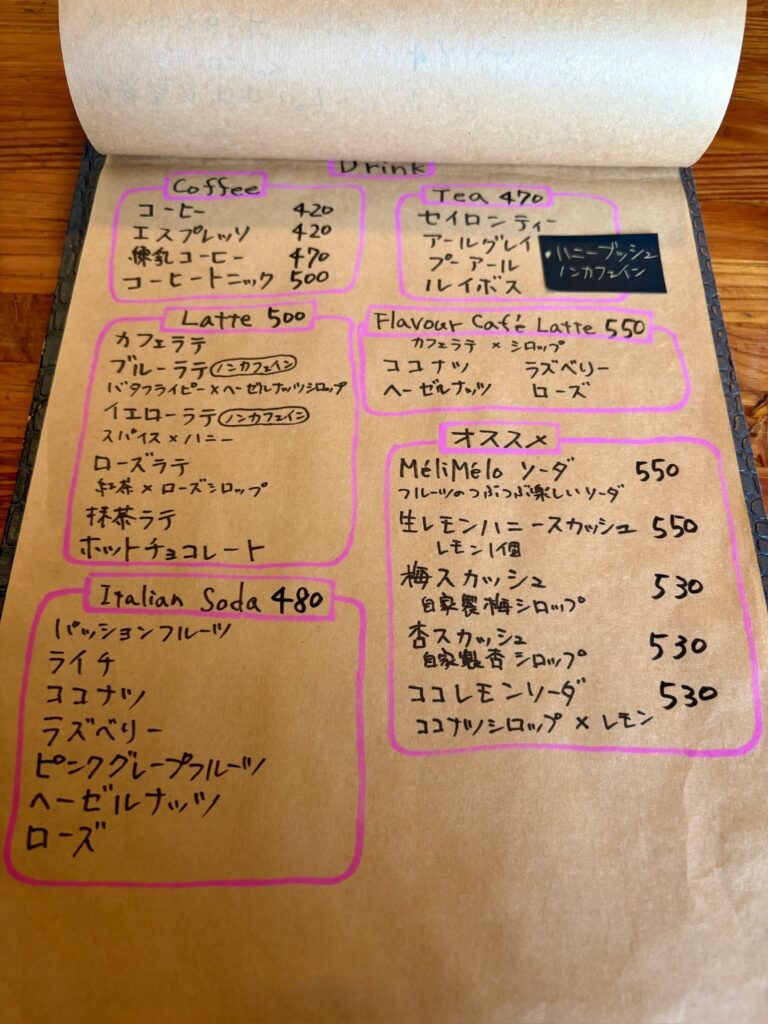 Drink
Coffee
コーヒー 420
エスプレッソ 420
練乳コーヒー 470
コーヒートニック 500
Tea 470
セイロンティー
アールグレイ
プーアール
ルイボス
・ハニーブッシュ
ノンカフェイン
Latte 500
カフェラテ
ブルーラテ ノンカフェイン
バタフライピー×ヘーゼルナッツシロップ
イエローラテ ノンカフェイン
スパイス×ハニー
ローズラテ
紅茶×ローズシロップ
抹茶ラテ
ホットチョコレート
Flavour Café Latte 550
カフェラテ × シロップ
ココナツ ラズベリー
ヘーゼルナッツ ローズ
オススメ
MéliMélo ソーダ 550
フルーツのつぶつぶ楽しいソーダ
生レモンハニースカッシュ 550
レモン1個
梅スカッシュ 530
自家製梅シロップ
杏スカッシュ 530
自家製杏シロップ
ココレモンソーダ 530
ココナツシロップ × レモン
Italian Soda 480
パッションフルーツ
ライチ
ココナツ
ラズベリー
ピンクグレープフルーツ
ヘーゼルナッツ
ローズ